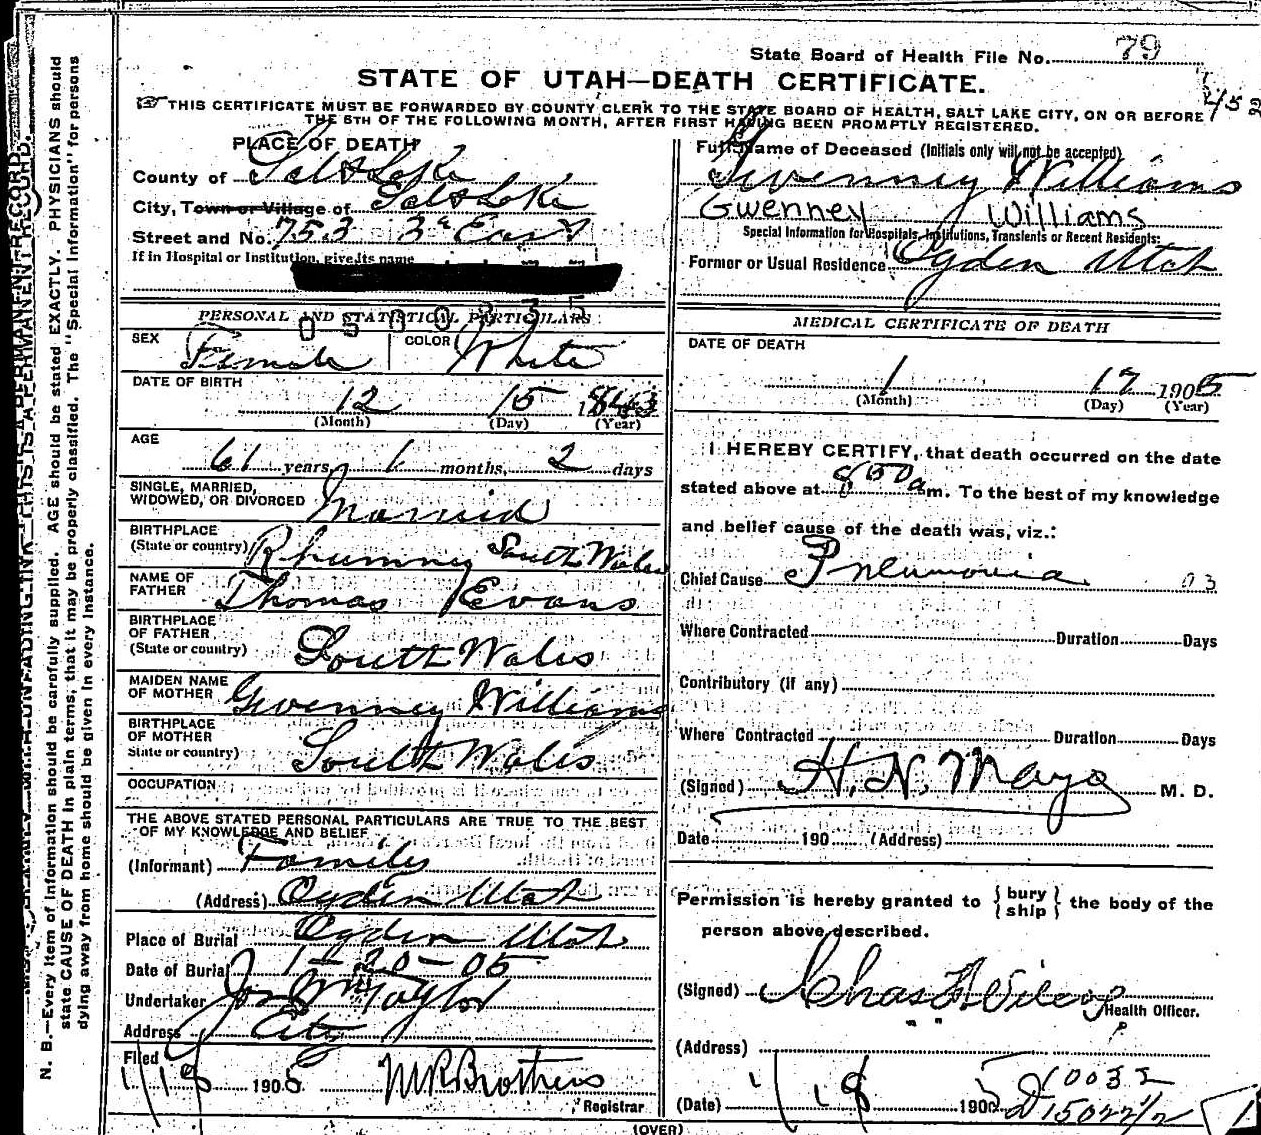 State Board of Health File No. 79
STATE OF UTAH—DEATH CERTIFICATE.
452
THIS CERTIFICATE MUST BE FORWARDED BY COUNTY CLERK TO THE STATE BOARD OF HEALTH, SALT LAKE CITY, ON OR BEFORE
THE 5TH OF THE FOLLOWING MONTH, AFTER FIRST HAVING BEEN PROMPTLY REGISTERED.
PLACE OF DEATH
County of Salt Lake
City, Town or Village of Salt Lake
Street and No. 753 3d East
If in Hospital or Institution, give its name
PERSONAL AND STATISTICAL PARTICULARS
SEX Female COLOR White
DATE OF BIRTH
12 15 1843
(Month) (Day) (Year)
AGE
61 years, 1 months, 2 days
SINGLE, MARRIED,
WIDOWED, OR DIVORCED Married
BIRTHPLACE
(State or country) Rhumney South Wales
NAME OF
FATHER Thomas Evans
BIRTHPLACE
OF FATHER
(State or country) South Wales
MAIDEN NAME
OF MOTHER Gwenney Williams
BIRTHPLACE
OF MOTHER
State or country) South Wales
OCCUPATION
THE ABOVE STATED PERSONAL PARTICULARS ARE TRUE TO THE BEST
OF MY KNOWLEDGE AND BELIEF
(Informant) Family
(Address) Ogden Utah
Place of Burial Ogden Utah
Date of Burial 1-20-05
Undertaker Jos Wm Taylor
Address City
Filed
1/18 1905 M R Brothers
Registrar
Full Name of Deceased (Initials only will not be accepted)
Gwenney Williams
Gwenney Williams
Special Information for Hospitals, Institutions, Transients or Recent Residents:
Former or Usual Residence Ogden Utah
MEDICAL CERTIFICATE OF DEATH
DATE OF DEATH
1 17 1905
(Month) (Day) (Year)
I HEREBY CERTIFY, that death occurred on the date
stated above at 8 50 a m. To the best of my knowledge
and belief cause of the death was, viz.:
Chief Cause Pneumonia 93
Where Contracted Duration Days
Contributory (if any)
Where Contracted Duration Days
(Signed) H. N. Mayo M. D.
Date 190 (Address)
Permission is hereby granted to { bury ship } the body of the
person above described.
(Signed) Chas F Wilcox
Health Officer.
(Address)
(Date) 1/18 1905
10032
D 15022 1/2
(OVER)
N. B.—Every item of information should be carefully supplied. AGE should be stated EXACTLY. PHYSICIANS should
state CAUSE OF DEATH in plain terms, that it may be properly classified. The "Special Information" for persons
dying away from home should be given in every instance.